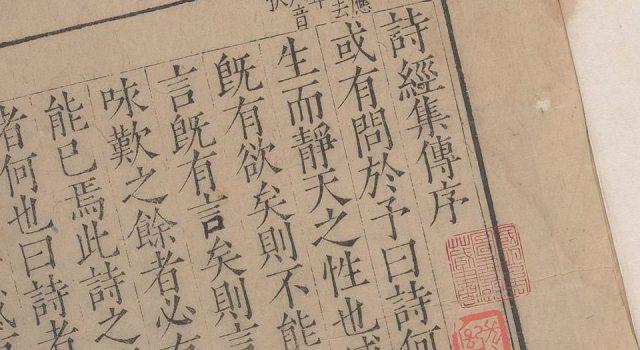 詩經集傳序
或有問於予曰詩何
生而靜天之性也感
既有欲矣則不能
言既有言矣則言
咏歎之餘者必有
能已焉此詩之
者何也曰詩者